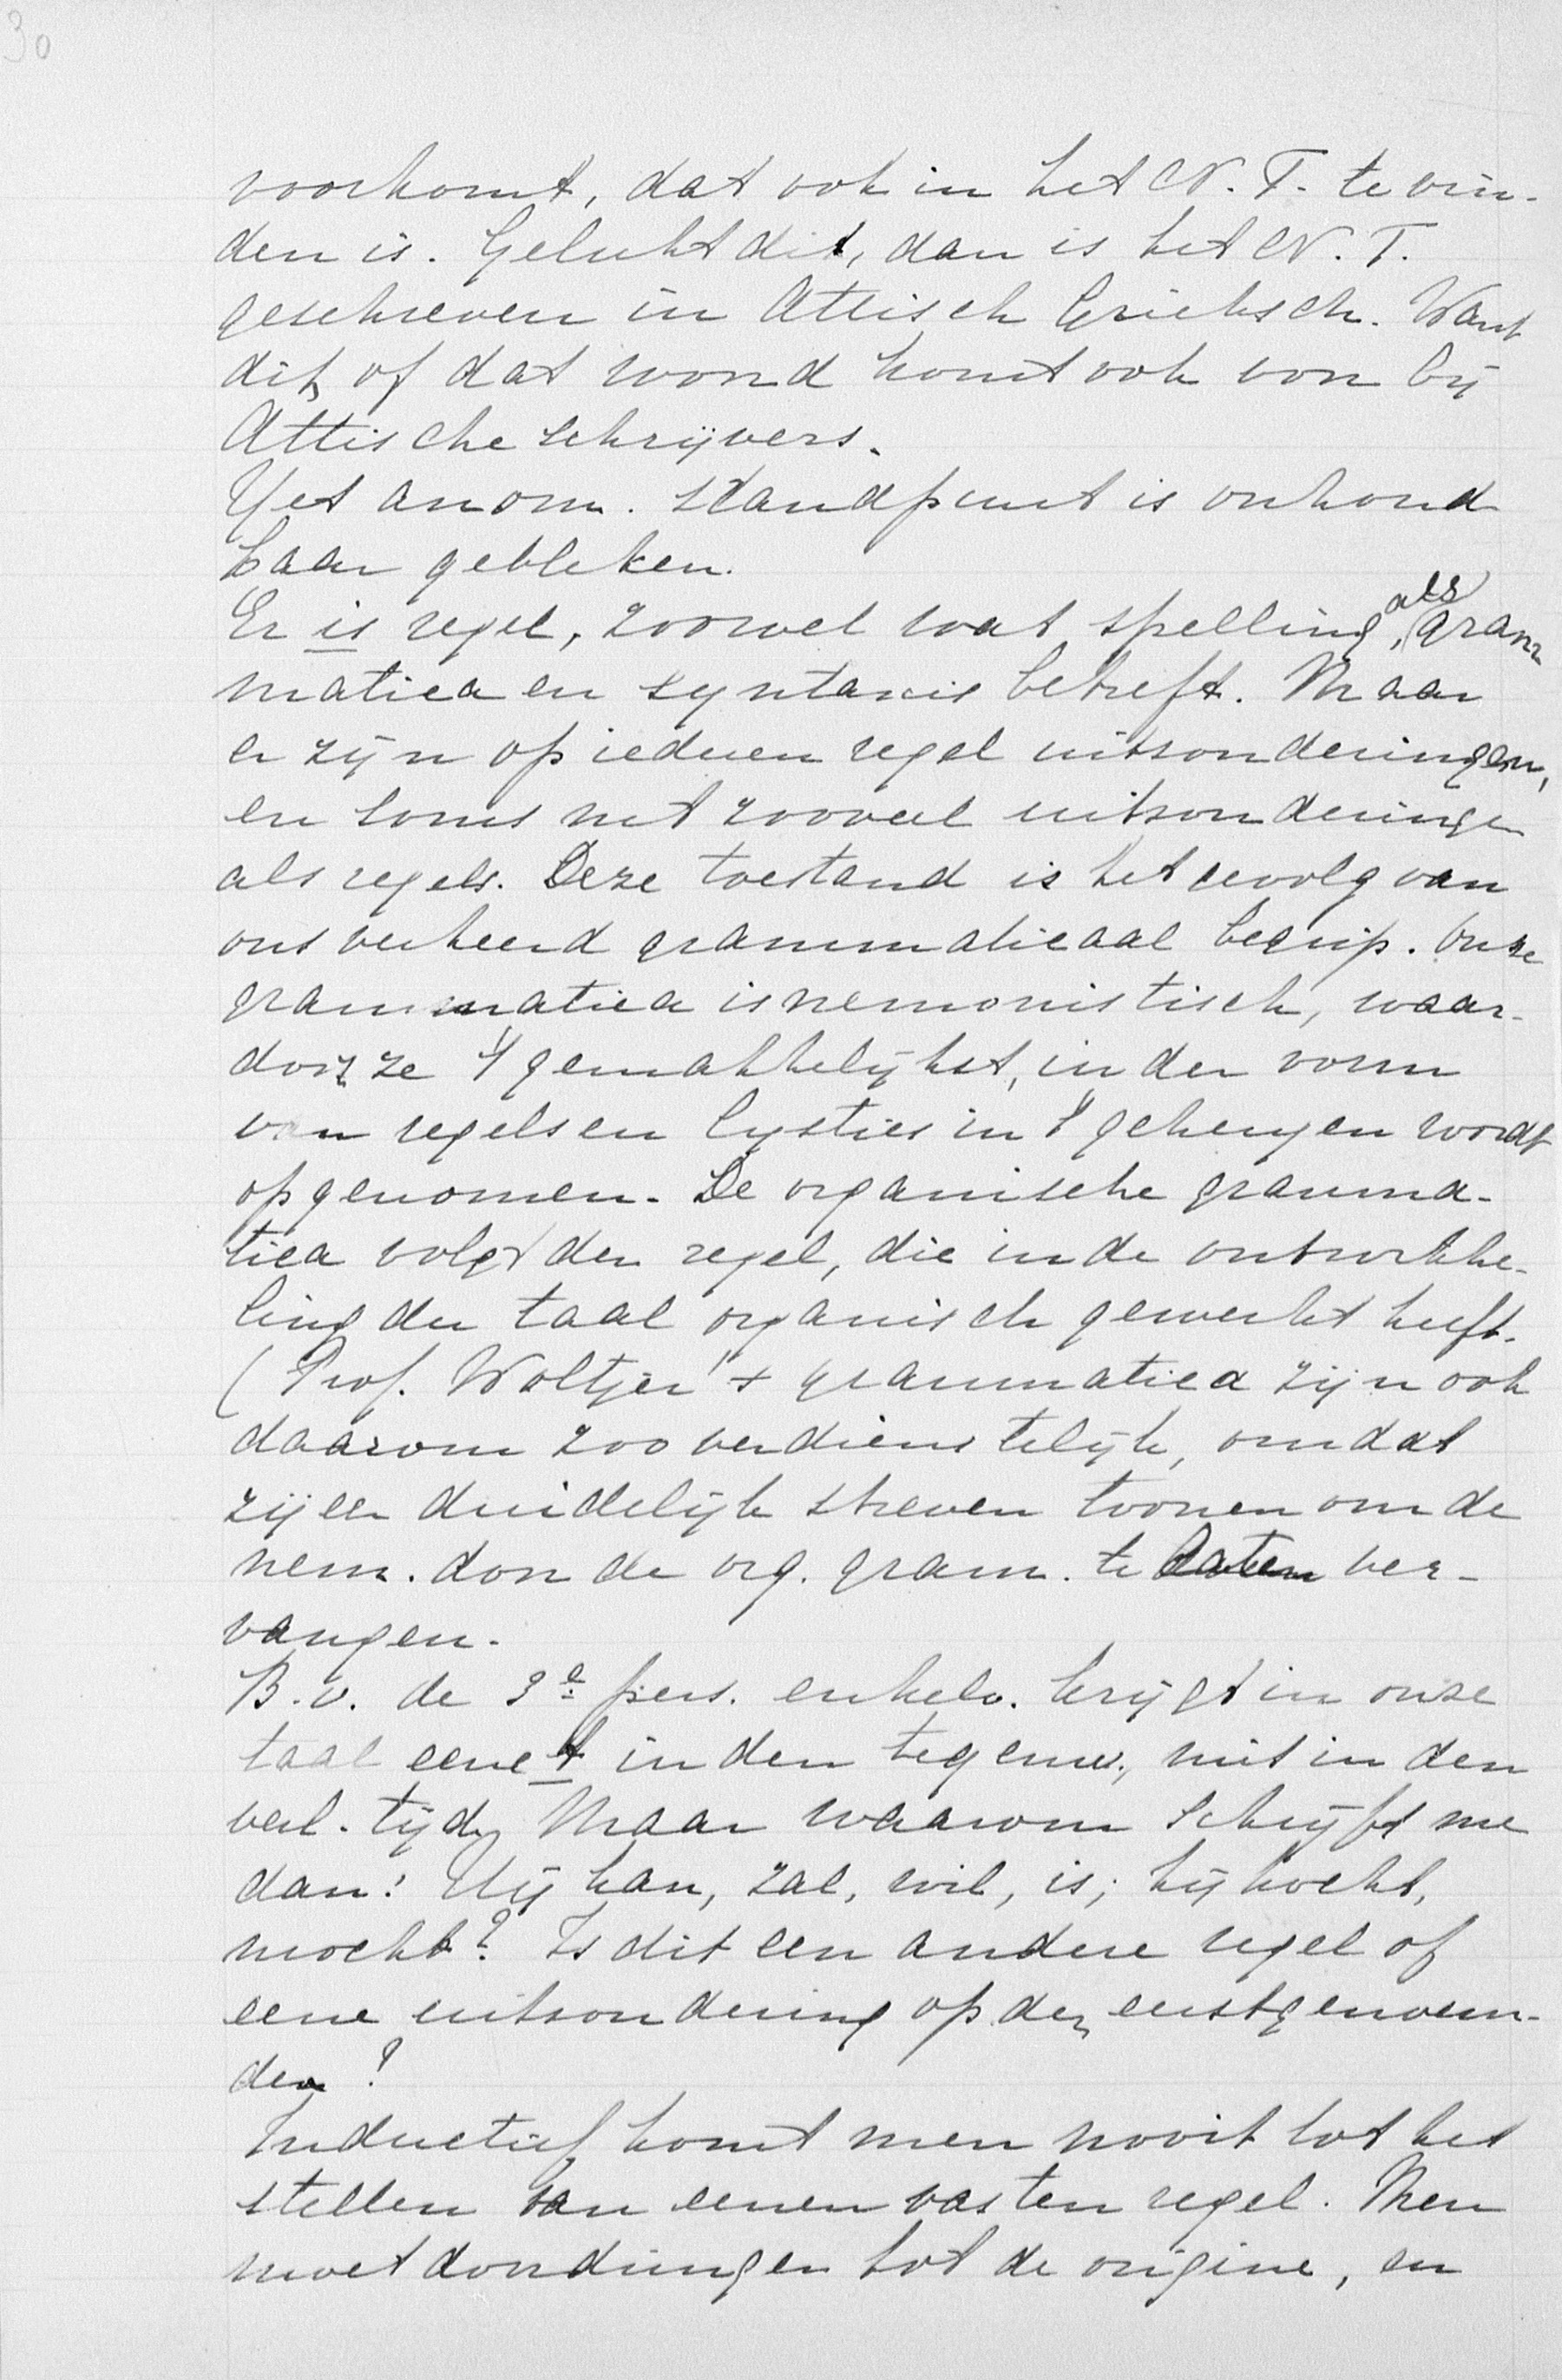 30
voorkomt, dat ook in het N. T. te vin-
den is. Gelukt dit, dan is het N. T.
geschreven in Attisch Grieksch. Want
dit of dat woord komt ook voor bij
Attische schrijvers.
Het anom. standpunt is onhoud
baar gebleken.
Er is regel, zoowel wat spelling, als gram
matica en syntaxis betreft. Maar
er zijn op iederen regel uitzonderingen,
en soms net zooveel uitzonderingen
als regels. Deze toestand is het gevolg van
ons verkeerd grammaticaal begrip. Onze
grammatica is nemonistisch, waar-
door ze 't gemakkelijkst, in den vorm
van regels en lijstjes in 't geheugen wordt
opgenomen. De organische gramma-
tica volgt den regel, die in de ontwikke-
ling der taal organisch gewerkt heeft.
(Prof. Woltjer's grammatica zijn ook
daarom zoo verdienstelijk, omdat
zij een duidelijk streven toonen om de
nem. door de org. gram. te laten ver-
vangen.
B.v. de 3e pers. enkelv. krijgt in onze
taal eene t in den tegenw., niet in den
verl. tijd. Maar waarom schrijft me
dan: Hij kan, zal, wil, is; hij kocht,
mocht? Is dit een andere regel of
eene uitzondering op den eerstgenoem-
den?
Inductief komt men nooit tot het
stellen van eenen vasten regel. Men
moet doordringen tot de origine, en